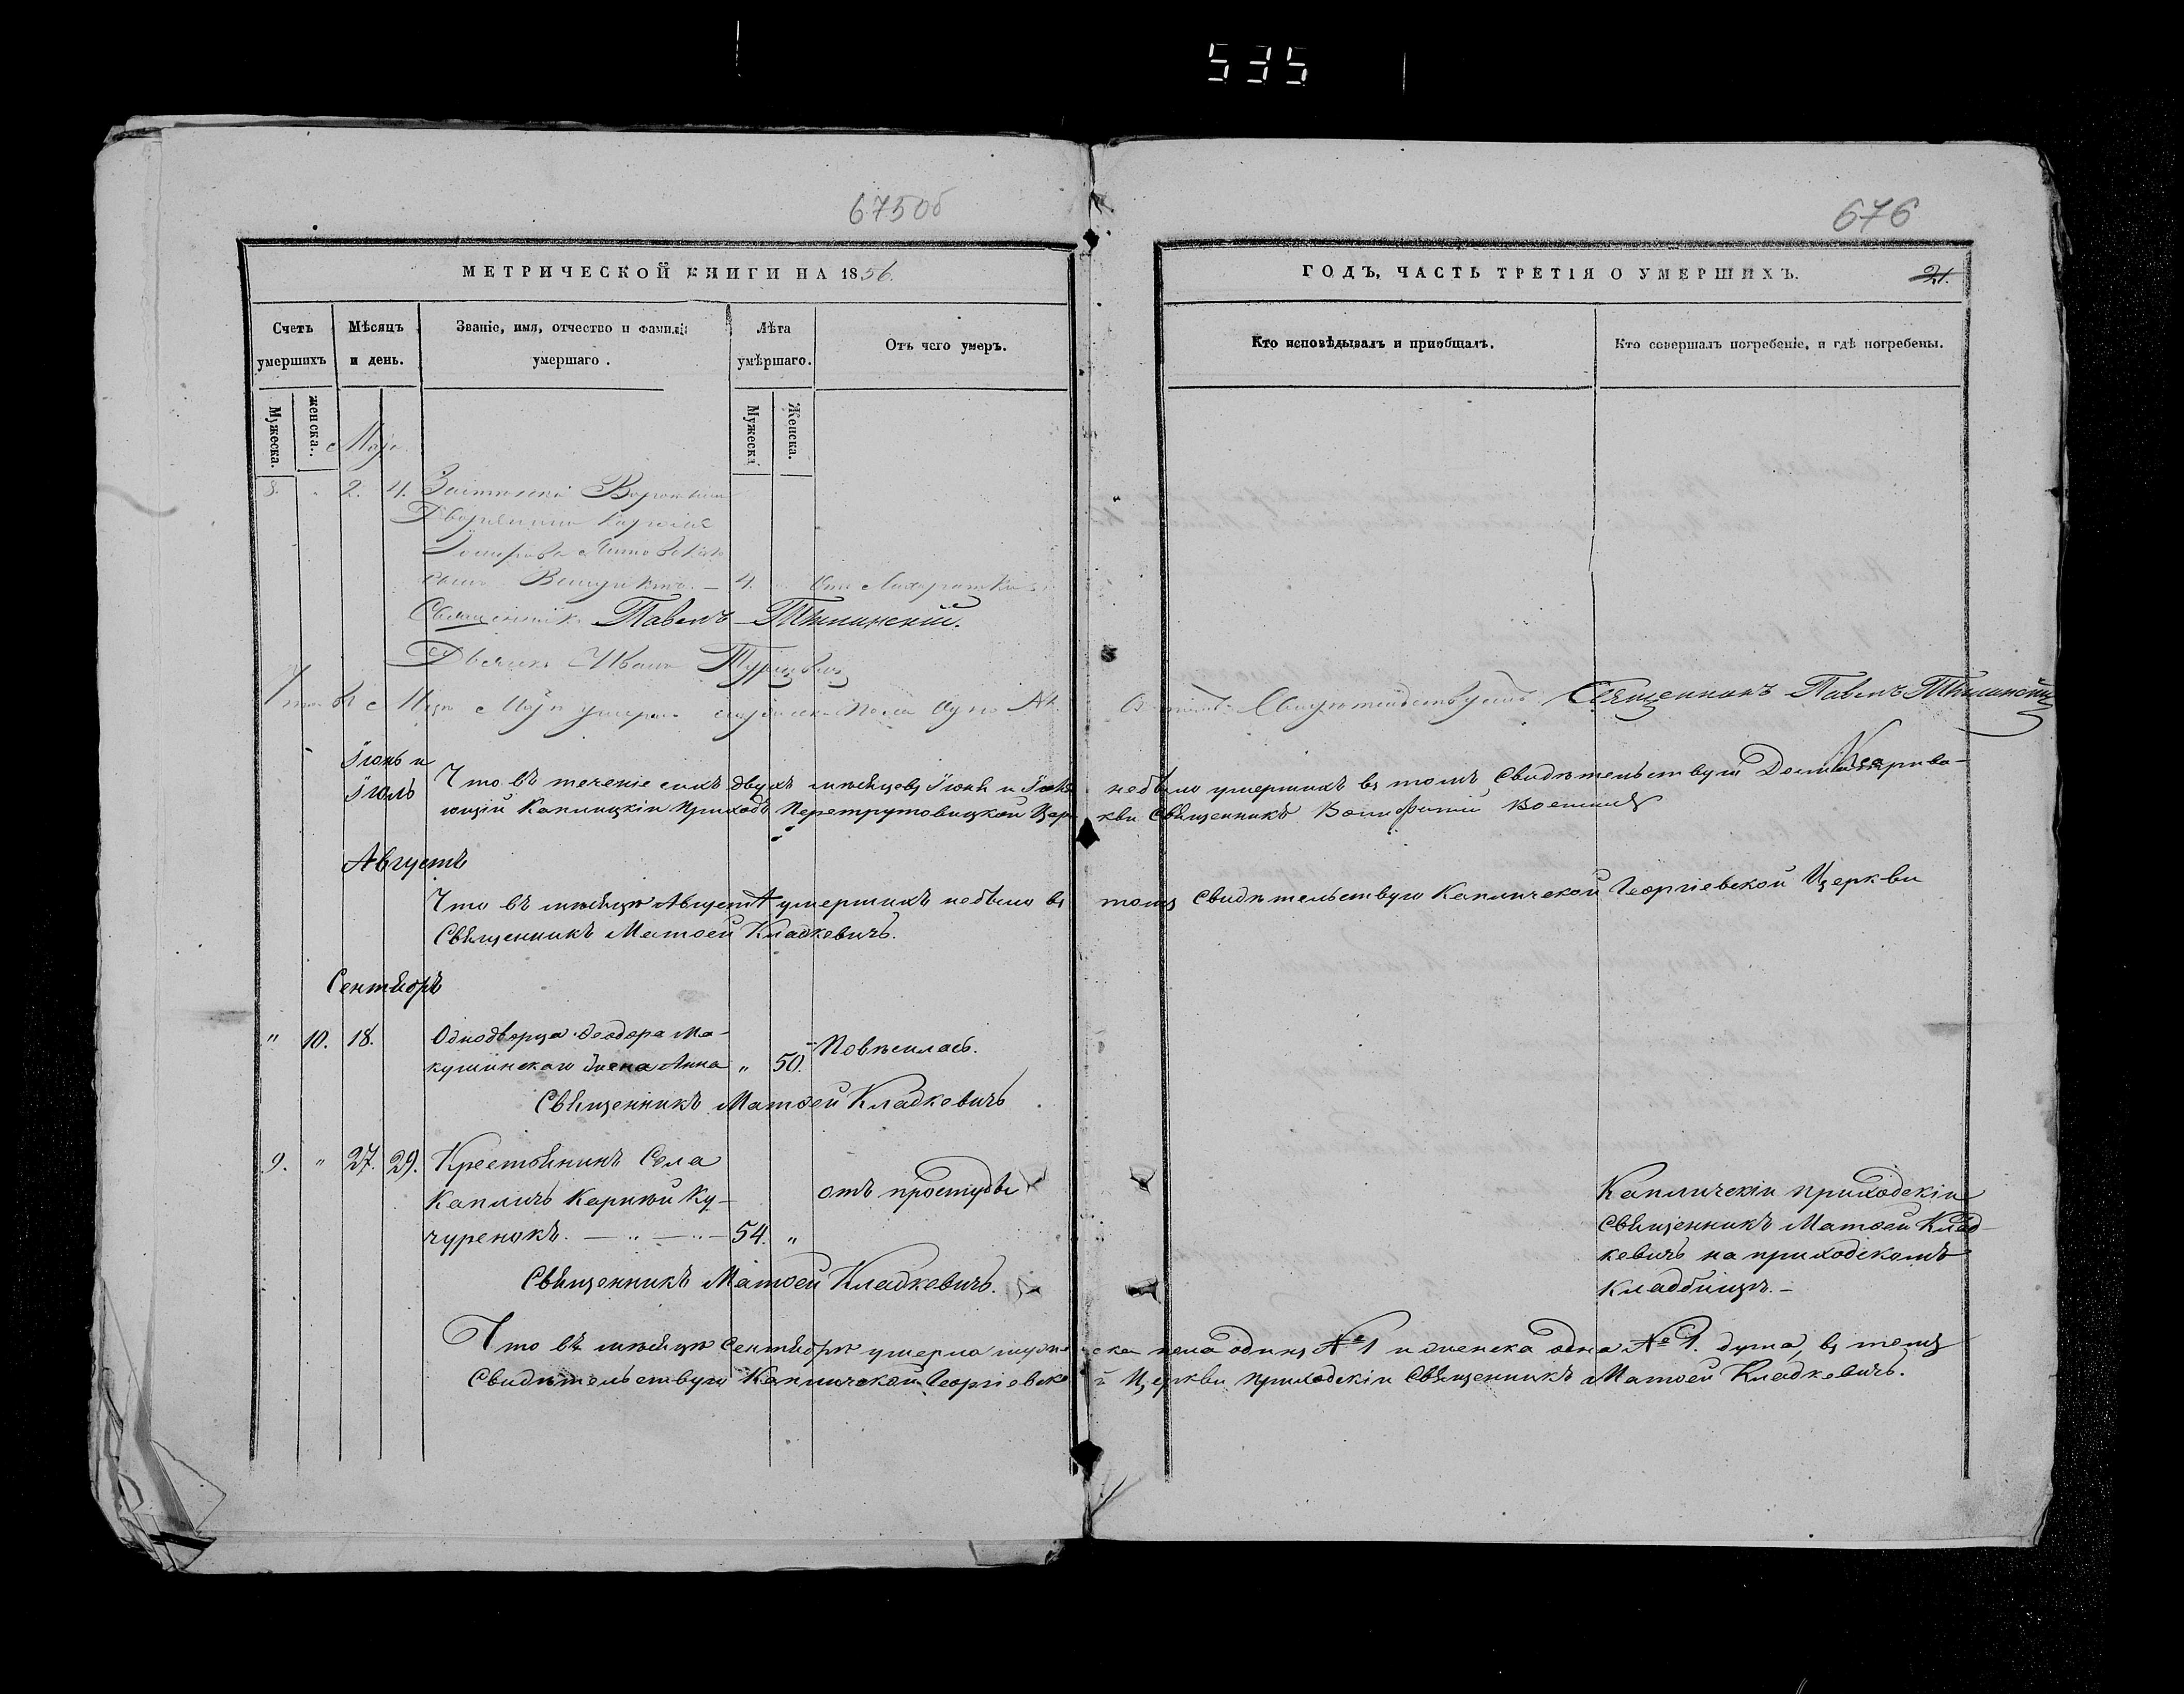 535
675об
676
МЕТРИЧЕСКОЙ КНИГИ НА 1856.
ГОДЪ, ЧАСТЬ ТРЕТІЯ О УМЕРШИХЪ.
21.
Счетъ умершихъ
Мѣсяцъ и день.
Званіе, имя, отчество и фамилія умершаго.
Лѣта умѣршаго.
Отъ чего умеръ.
Кто исповѣдывалъ и пріобщалъ.
Кто совершалъ погребеніе, и гдѣ погребены.
Мужеска.
женска.
Мужеска
Женска.
Май
8. " 2. 4.
Дворянина
сынъ 4. Отъ
Священникъ Павелъ Тышинскій.
Дьячикъ Иванъ
Что въ м Маѣ умерло мужеска пола № 1. Свидѣтельствуетъ Священникъ Павелъ Тышинскій
Іюнь и
Іюль Что въ теченіе сихъ двухъ мѣсяцовъ Іюня и Іюля небыло умершихъ въ томъ Свидѣтельствую
ющій Каплицкій Приходъ Перетрутовицкой Церкви Священникъ
Августъ
Что въ мѣсяцѣ Августѣ умершихъ небыло въ томъ Свидѣтельствую Капличской Георгіевской Церкви
Священникъ Матѳей Кладкевичъ.
Сентябрь
" 10. 18. Однодворца Ѳеодора Ма-
кушинскаго жена Анна " 50. Повѣсилась.
Священникъ Матѳей Кладкевичъ
9. " 27. 29. Крестьянинъ Села
Капличъ Карпій Ку- отъ простуды
чуренокъ. 54. "
Капличскій приходскій
Священникъ Матѳей Клад-
кевичъ на приходскомъ
Кладбищѣ.
Священникъ Матѳей Кладкевичъ.
Что въ мѣсяцѣ Сентябрѣ умерло мужеска пола одинъ № 1 и женска одна № 1. душа, въ томъ
Свидѣтельствую Капличской Георгіевской Церкви приходскій Священникъ Матѳей Кладкевичъ.